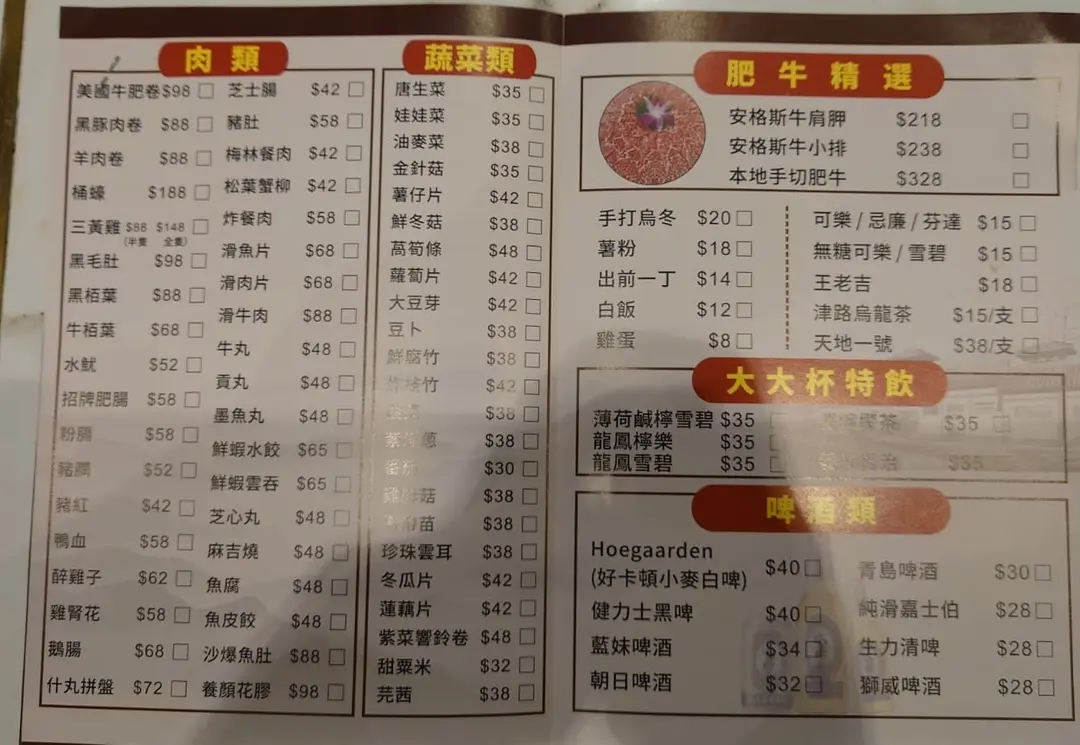 肉類
美國牛肥卷 $98
黑豚肉卷 $88
羊肉卷 $88
桶蠔 $188
三黃雞 $88 $148
(半隻 全隻)
黑毛肚 $98
黑栢葉 $88
牛栢葉 $68
水魷 $52
招牌肥腸 $58
粉腸 $58
豬膶 $52
豬紅 $42
鴨血 $58
醉雞子 $62
雞腎花 $58
鵝腸 $68
什丸拼盤 $72
芝士腸 $42
豬肚 $58
梅林餐肉 $42
松葉蟹柳 $42
炸餐肉 $58
滑魚片 $68
滑肉片 $68
滑牛肉 $88
牛丸 $48
貢丸 $48
墨魚丸 $48
鮮蝦水餃 $65
鮮蝦雲吞 $65
芝心丸 $48
麻吉燒 $48
魚腐 $48
魚皮餃 $48
沙爆魚肚 $88
養顏花膠 $98
蔬菜類
唐生菜 $35
娃娃菜 $35
油麥菜 $38
金針菇 $35
薯仔片 $42
鮮冬菇 $38
萵筍條 $48
蘿蔔片 $42
大豆芽 $42
豆卜 $38
鮮腐竹 $38
炸枝竹 $42
$38
$38
$30
$38
$38
珍珠雲耳 $38
冬瓜片 $42
蓮藕片 $42
紫菜響鈴卷 $48
甜粟米 $32
芫茜 $38
肥牛精選
安格斯牛肩胛 $218
安格斯牛小排 $238
本地手切肥牛 $328
手打烏冬 $20
薯粉 $18
出前一丁 $14
白飯 $12
雞蛋 $8
可樂/忌廉/芬達 $15
無糖可樂/雪碧 $15
王老吉 $18
津路烏龍茶 $15/支
天地一號 $38/支
大大杯特飲
薄荷鹹檸雪碧 $35
龍鳳檸樂 $35
龍鳳雪碧 $35
$35
$35
啤酒類
Hoegaarden
(好卡頓小麥白啤) $40
健力士黑啤 $40
藍妹啤酒 $34
朝日啤酒 $32
青島啤酒 $30
純滑嘉士伯 $28
生力清啤 $28
獅威啤酒 $28